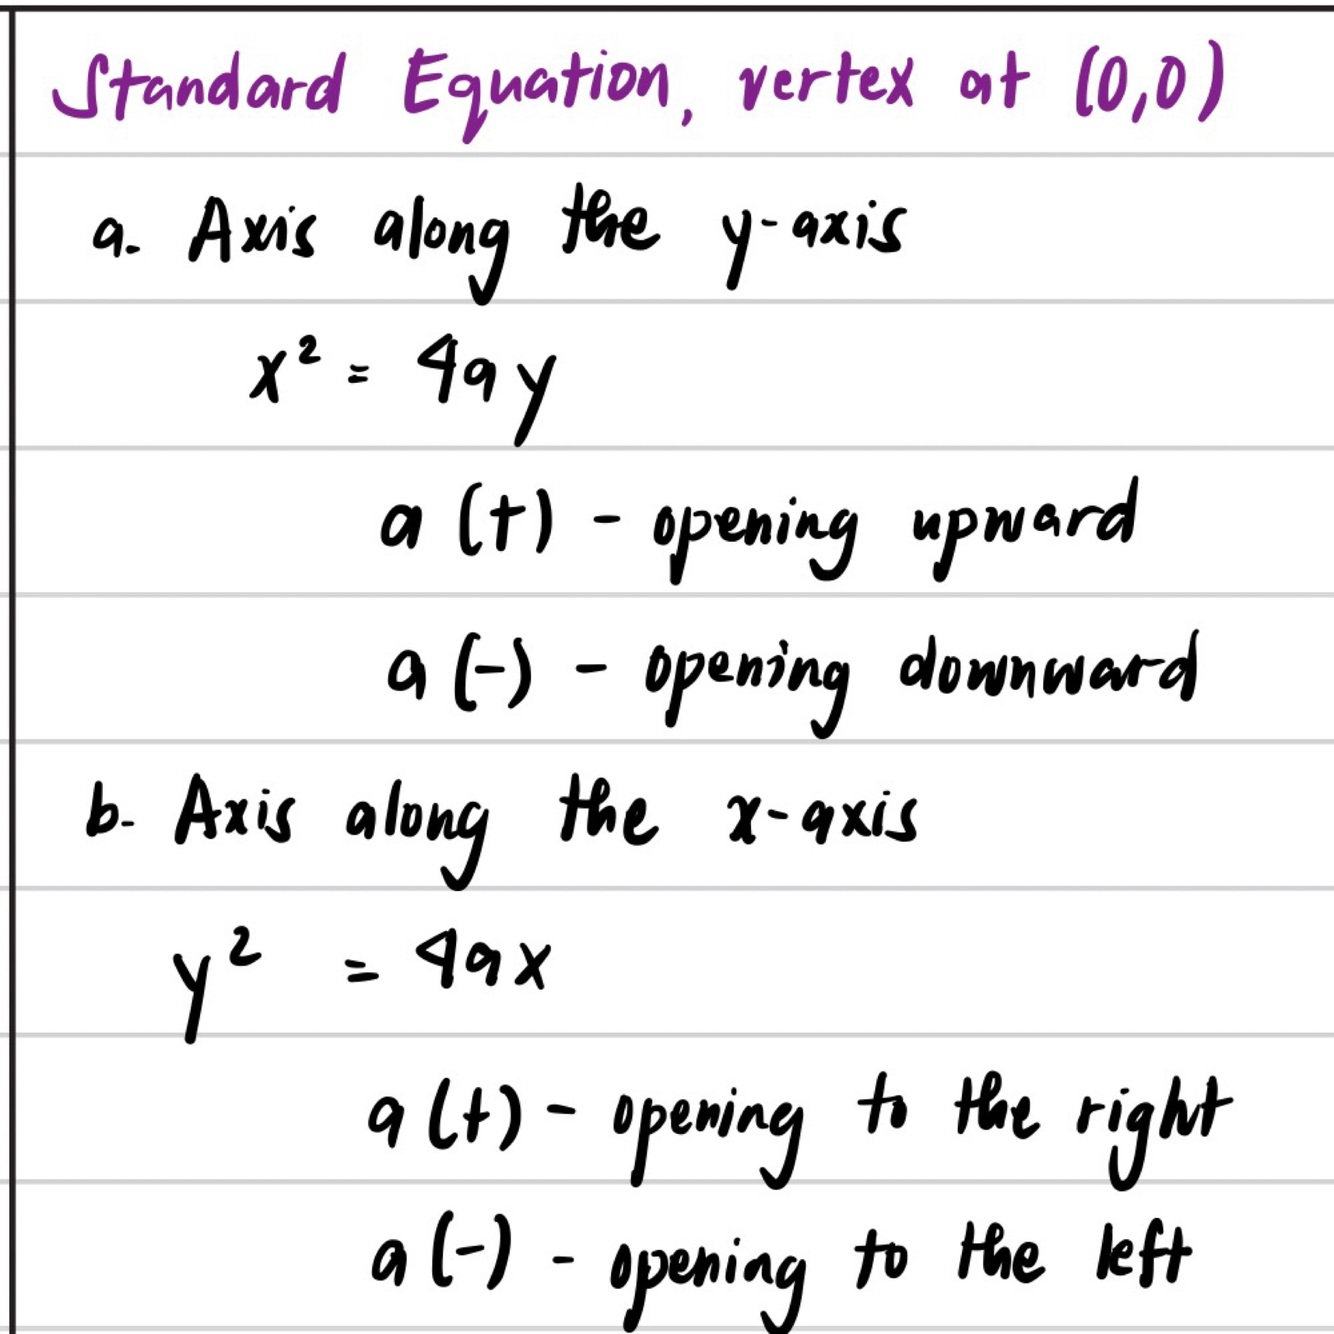 Standard Equation, vertex at (0,0)
a. Axis along the y-axis
x² = 4ay
a (+) - opening upward
a (-) - opening downward
b. Axis along the x-axis
y² = 4ax
a (+) - opening to the right
a (-) - opening to the left